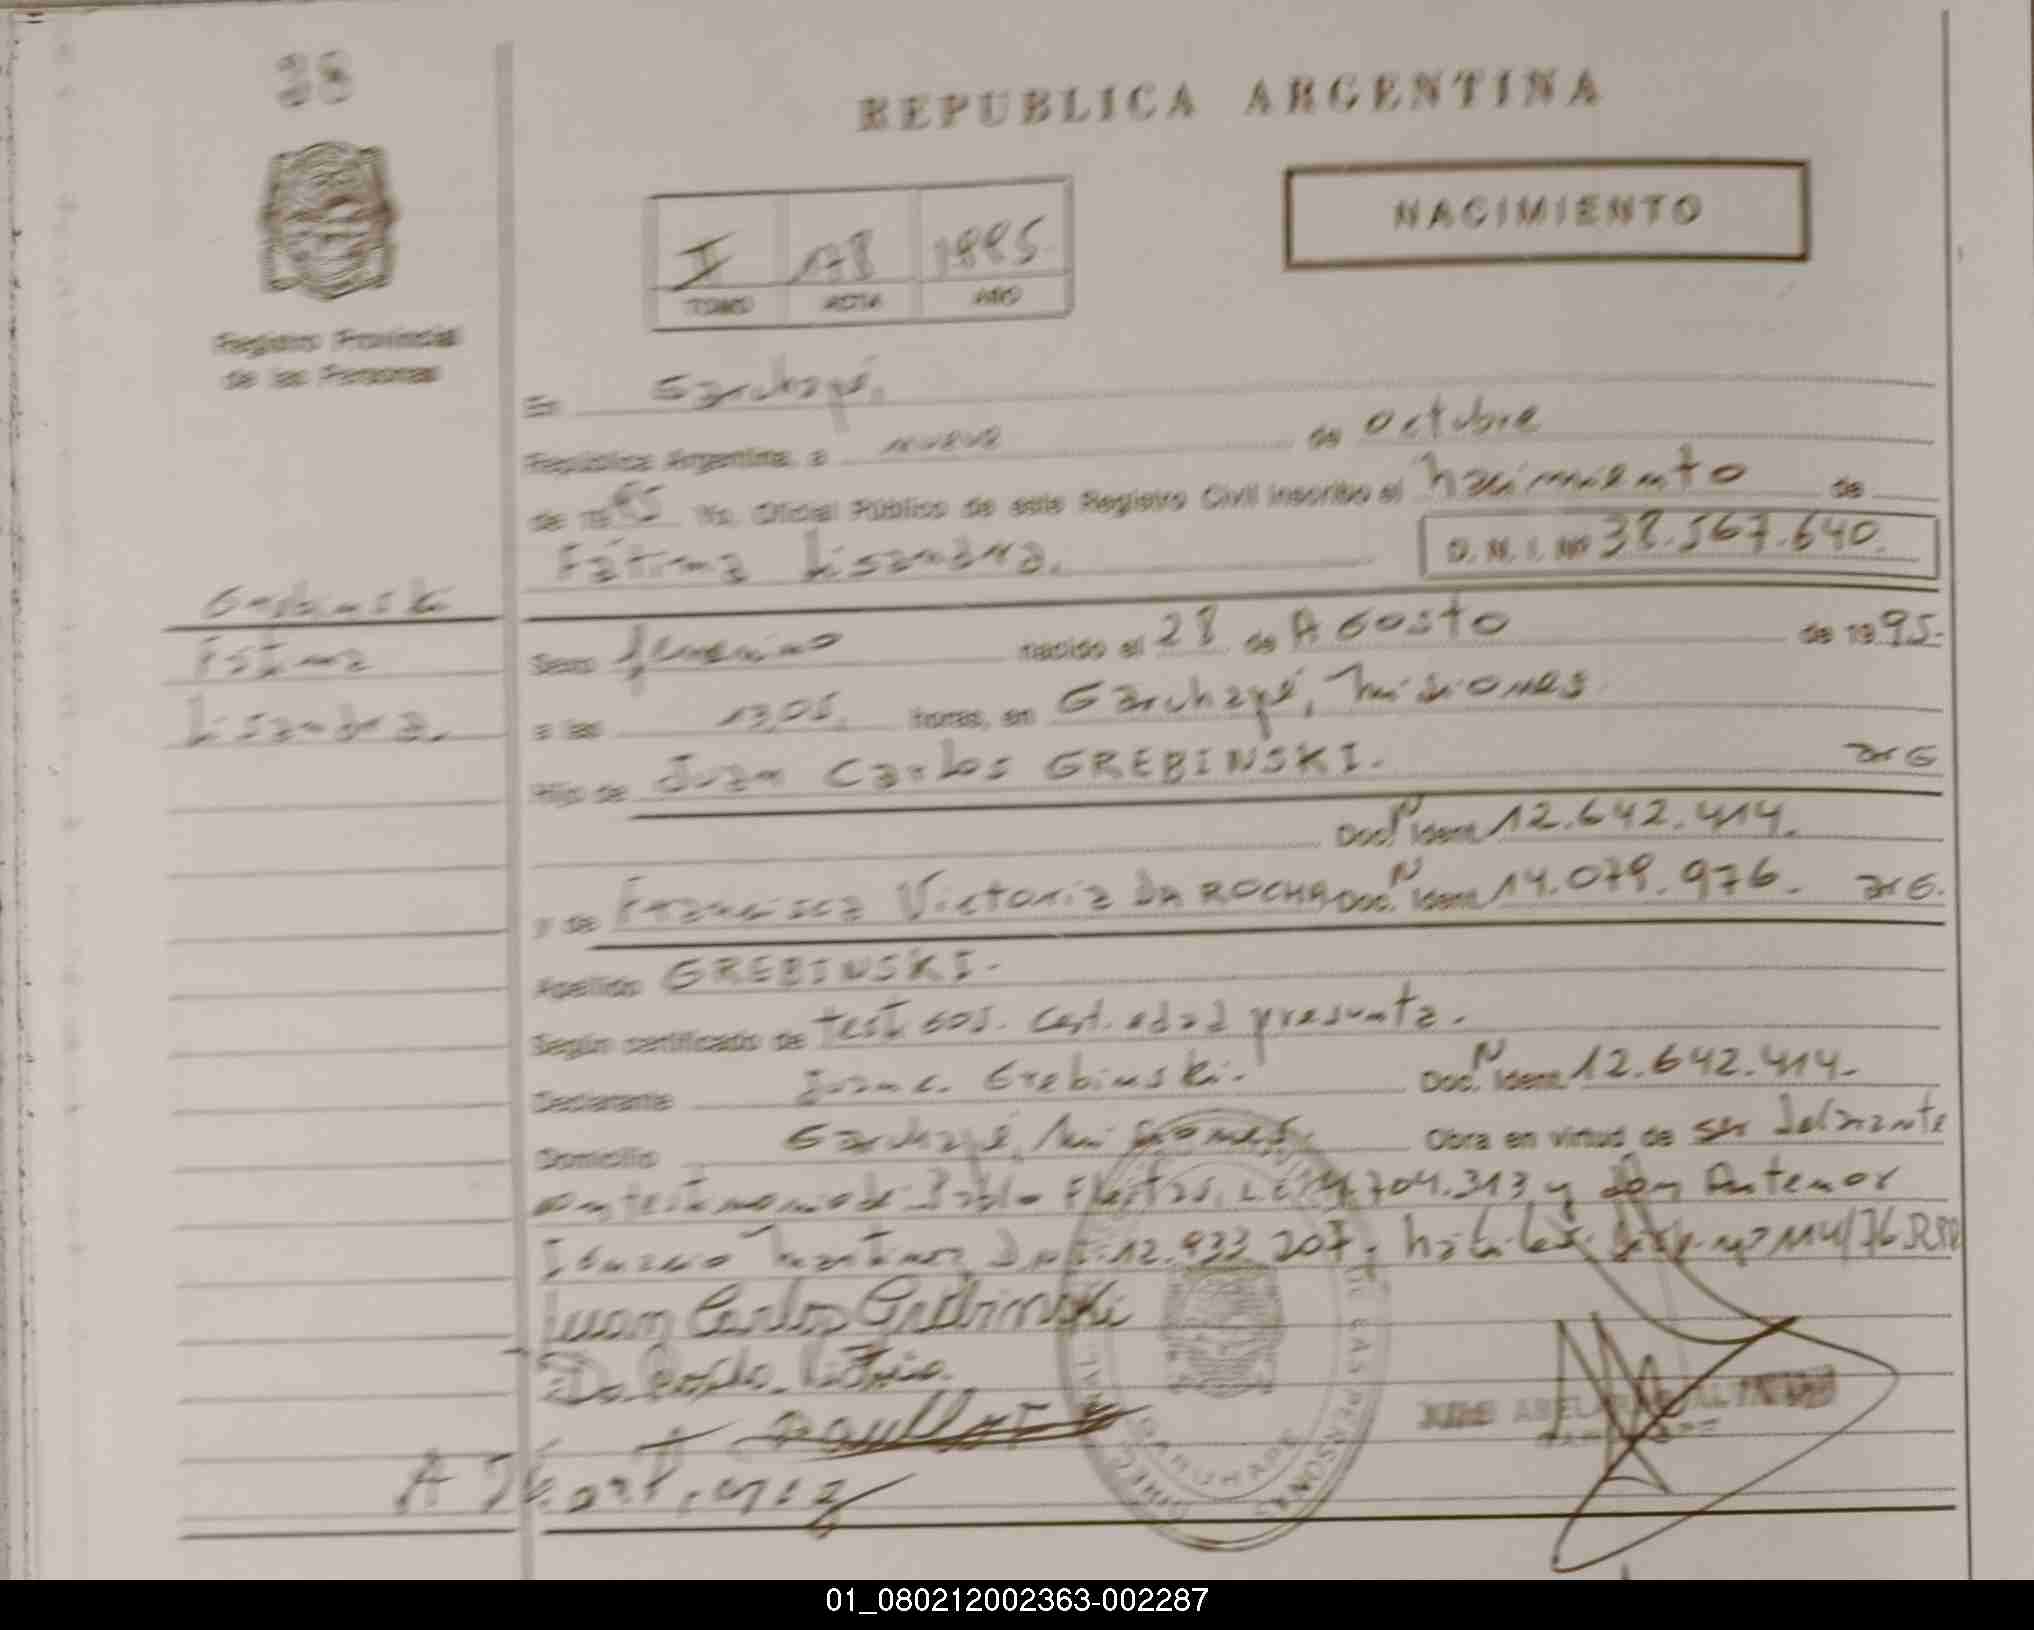 38
REPUBLICA ARGENTINA
NACIMIENTO
I 178 1995
TOMO ACTA AÑO
Registro Provincial
de las Personas
En Garuhapé,
República Argentina, a nueve de octubre
de 1995 Yo, Oficial Público de este Registro Civil inscribo el nacimiento de
Fátima Lisandra. D. N. I. Nº 38.567.640.
Grebinski
Fátima
Lisandra.
Sexo femenino nacido el 28 de AGosto de 1995.
a las 13,05. horas, en Garuhapé, Misiones
Hijo de Juan Carlos GREBINSKI. arG
Doc. N Ident. 12.642.414.
y de Francisca Victoria DA ROCHA Doc. N Ident. 14.079.976. arG.
Apellido GREBINSKI.
Según certificado de testigos. Cert. edad presunta.
Declarante Juan C. Grebinski. Doc. N Ident. 12.642.414.
Domicilio Garuhapé, Misiones. Obra en virtud de ser
testimonio de Pablo Fleitas, 704.313 y don Antenor
Ignacio Martinez 12.933.207, hábiles 114/76
Juan Carlos Grebinski
Da Rocha Victoria
A Martinez
DE LAS PERSONAS
GARUHAPE
01_080212002363-002287